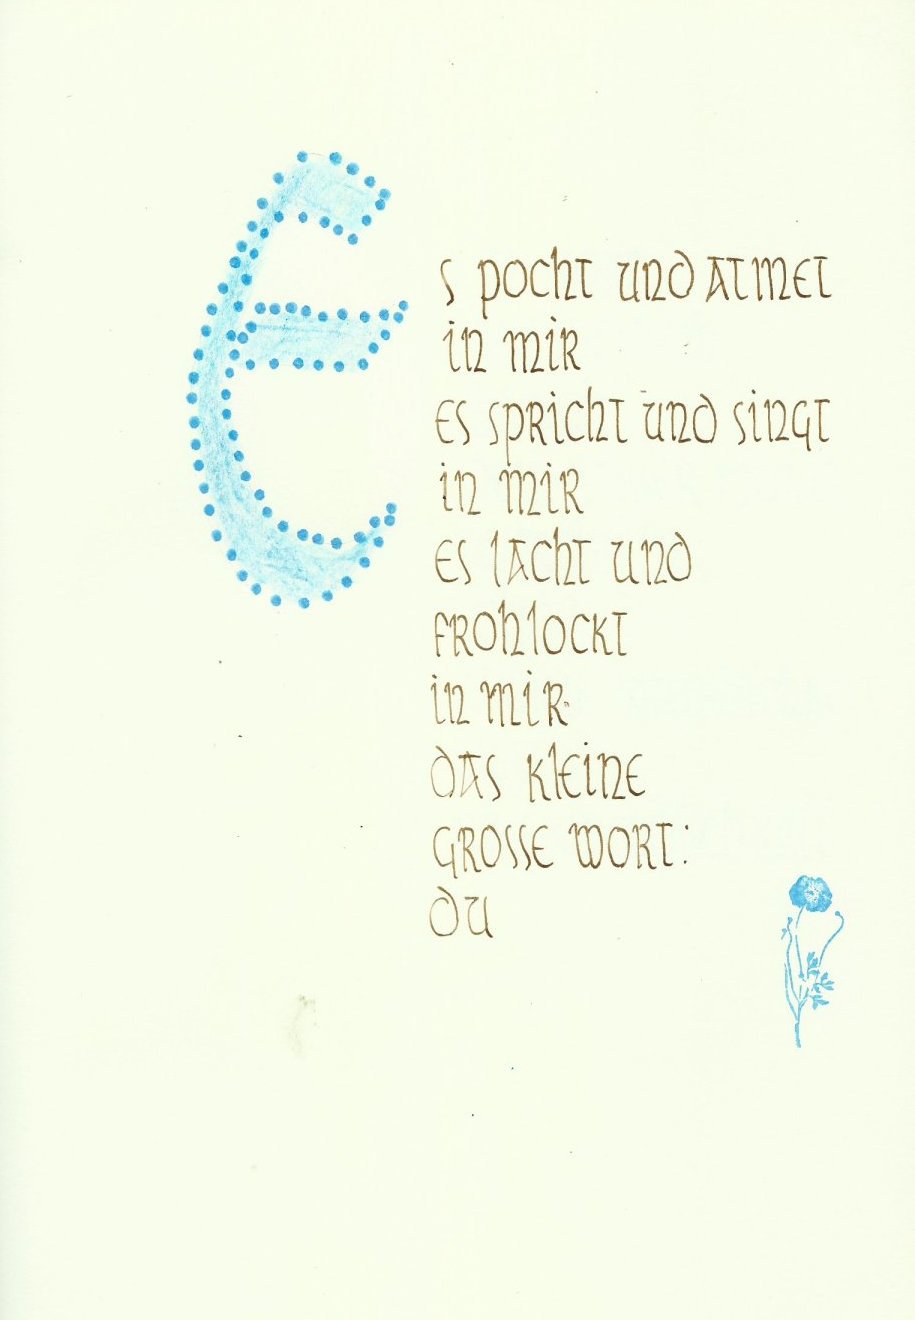 Es pocht und atmet
in mir
es spricht und singt
in mir
es lacht und
frohlockt
in mir
das kleine
grosse Wort:
du